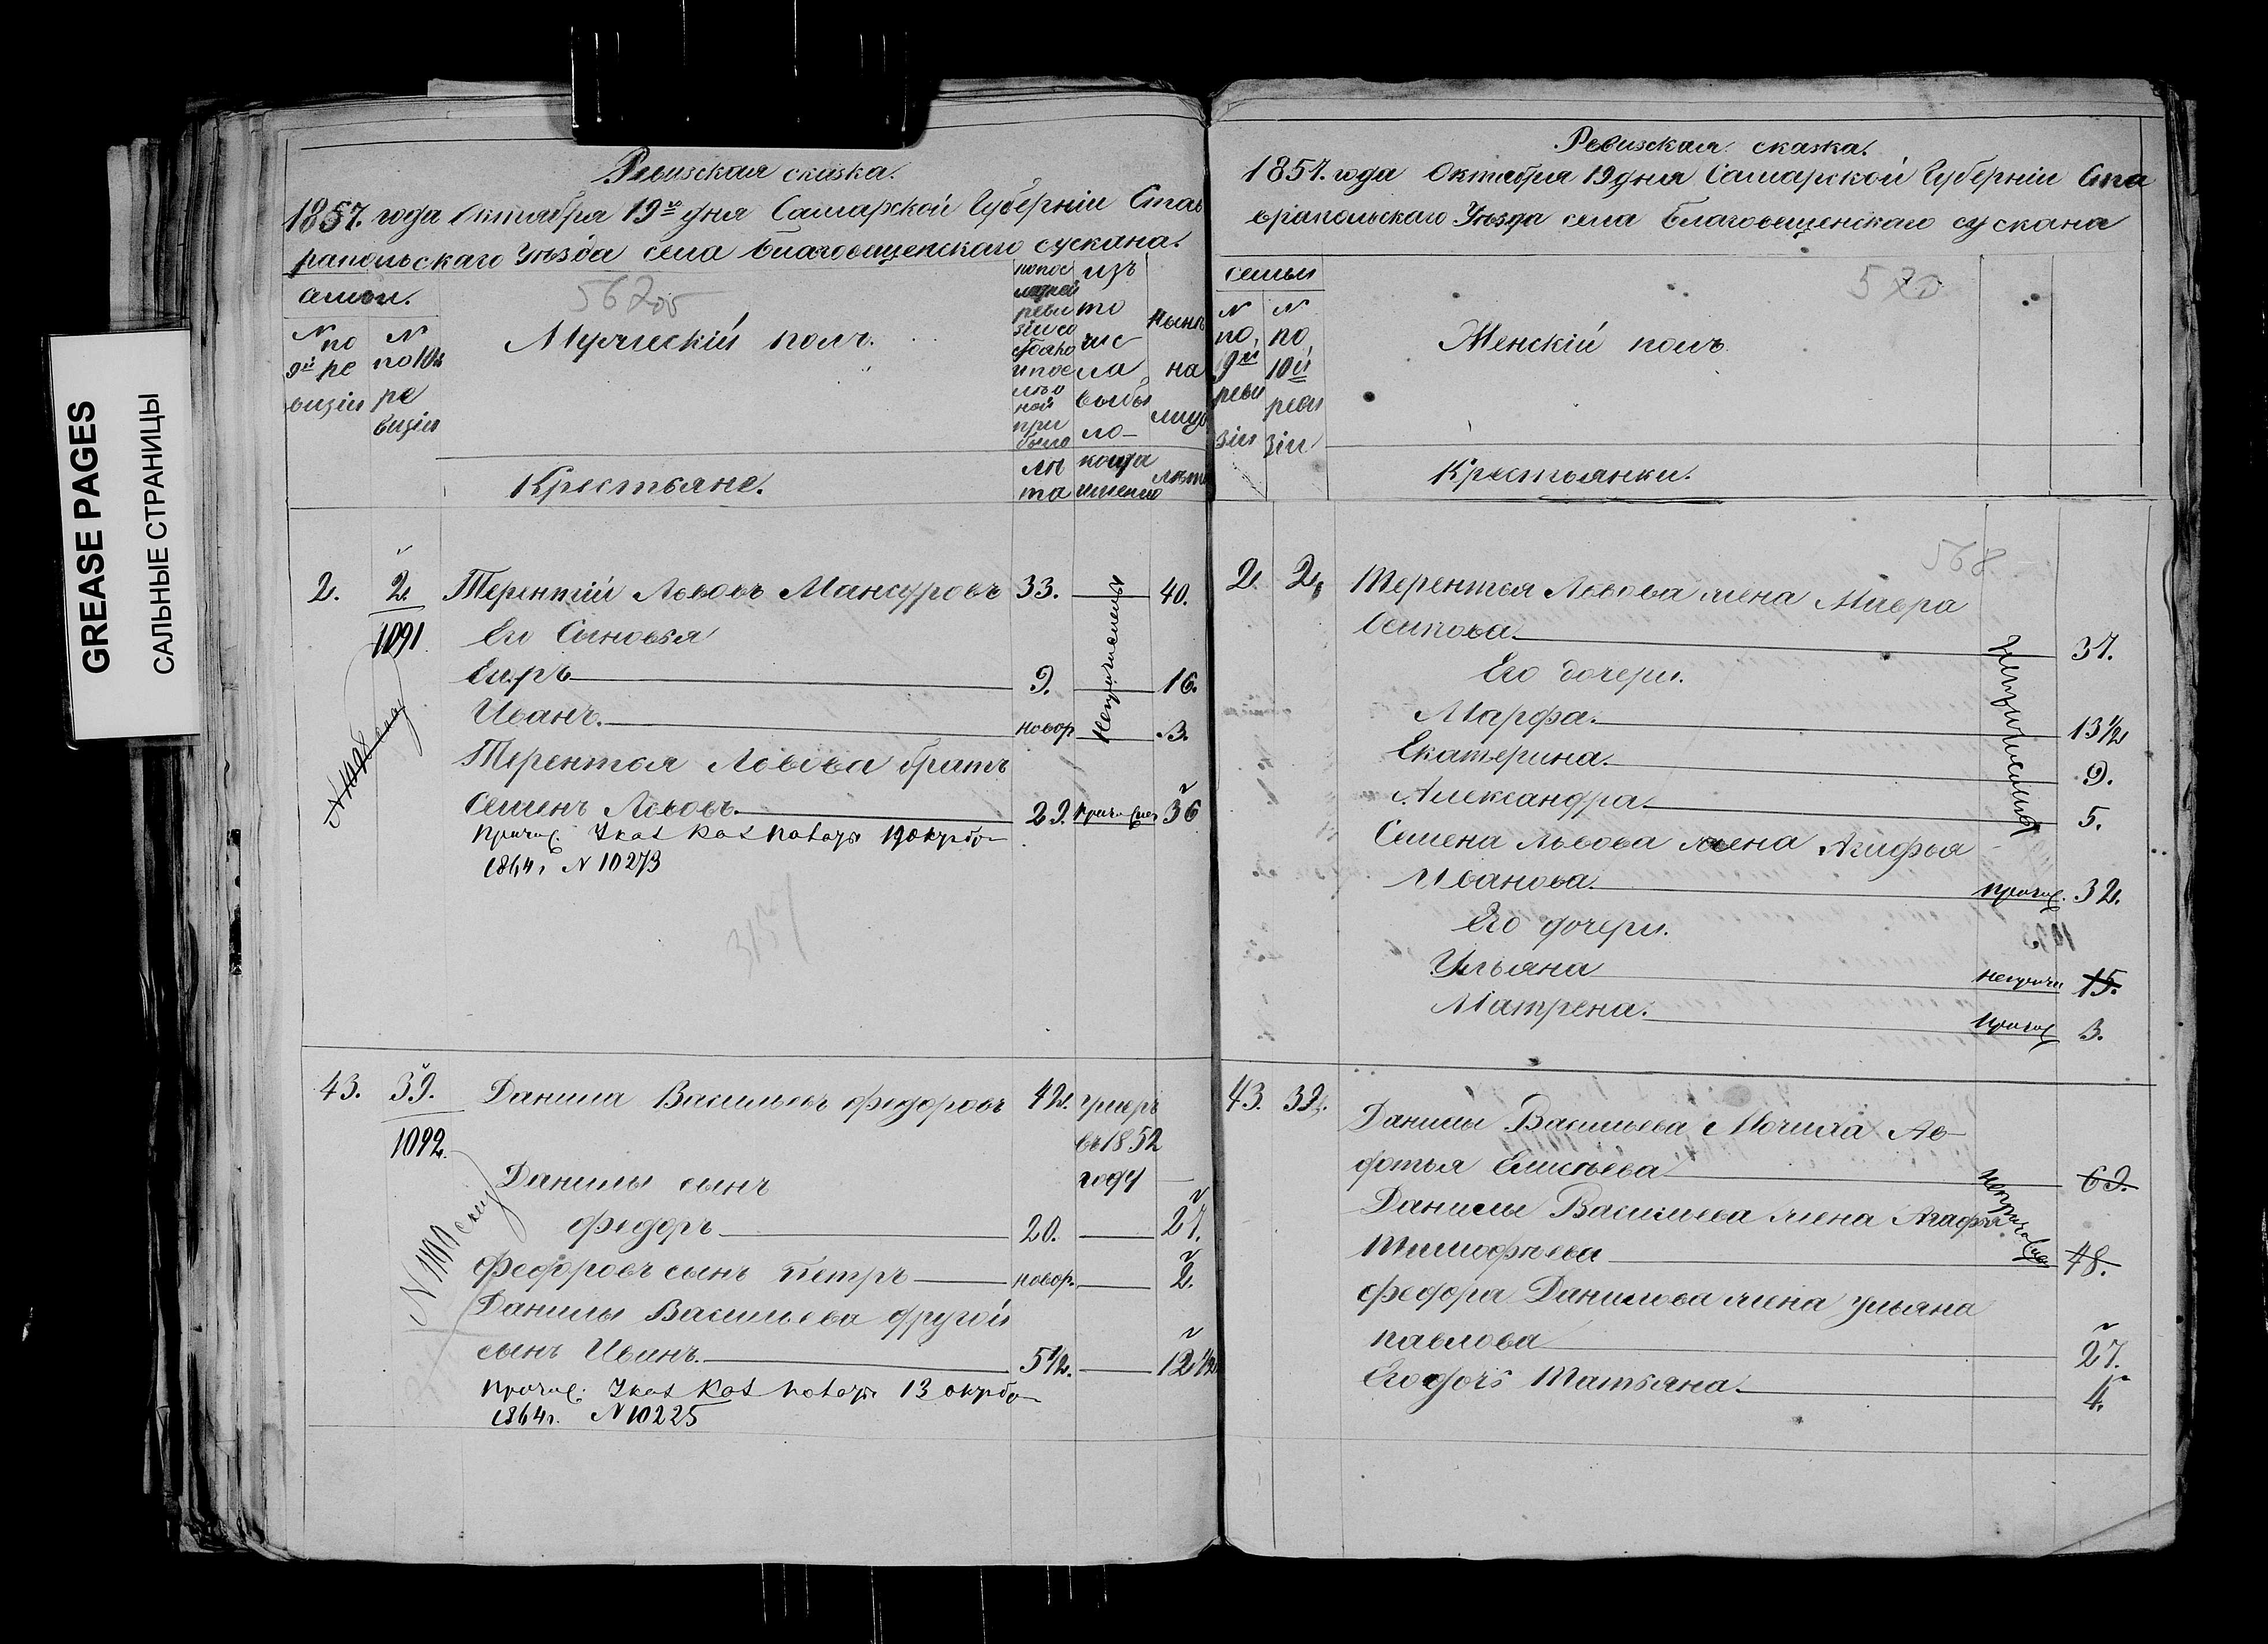 GREASE PAGES
САЛЬНЫЕ СТРАНИЦЫ
Ревизская сказка.
1857. года Октября 19го дня Самарской Губерніи Став
рапольскаго Уѣзда села Благовещенскаго сускана.
567об
семьи.
N по 9й ре визіи
N по 10й ре визіи
Мужескій полъ.
по последней ревизіи состояло и после оной прибыло
изъ то числа выбыло
Нынѣ на лицо
Крестьяне.
лета
когда именно
лѣта
2. 2. Терентій Львовъ Мансуровъ 33. 40.
1091
Его Сыновья
Киръ 9. 16.
Иванъ. новор 3.
Непричисленъ
Терентья Львова братъ
Семенъ Львовъ 29. 36
Причис. Указ Каз Палаты 19 октяб
1864г. N 10273
N 1098
3151
43. 39. Данила Васильевъ федоровъ 42. умеръ
1092. въ 1852
Данилы сынъ году
федоръ 20. 27.
федоровъ сынъ Петръ новор. 2.
Данилы Васильева другой
сынъ Иванъ. 5½. 12½
Причис. Указ Каз Палаты 13 октяб
1864г. N 10225
Ревизская сказка.
1857. года Октября 19 дня Самарской Губерніи Ста
врапольскаго Уѣзда села Благовещенскаго сускана
570
семьи
N по, 9й реви зіи
N по 10й реви зіи
Женскій полъ.
Крестьянки.
568
2. 2. Терентья Львова жена Мавра
Осипова 37.
Его дочери.
Марфа. 13½
Екатерина. 9.
Александра. 5.
Семена Львова жена Агафья
Иванова причис. 32.
Его дочери.
Ульяна неприч 15.
Матрена. причис 3.
43. 39. Данилы Васильева Мачиха Ав-
дотья Елисѣева 69.
Данилы Васильева жена Агафья
Тимофѣева 48.
федора Данилова жена ульяна
павлова 27.
Его дочь Татьяна. 4.